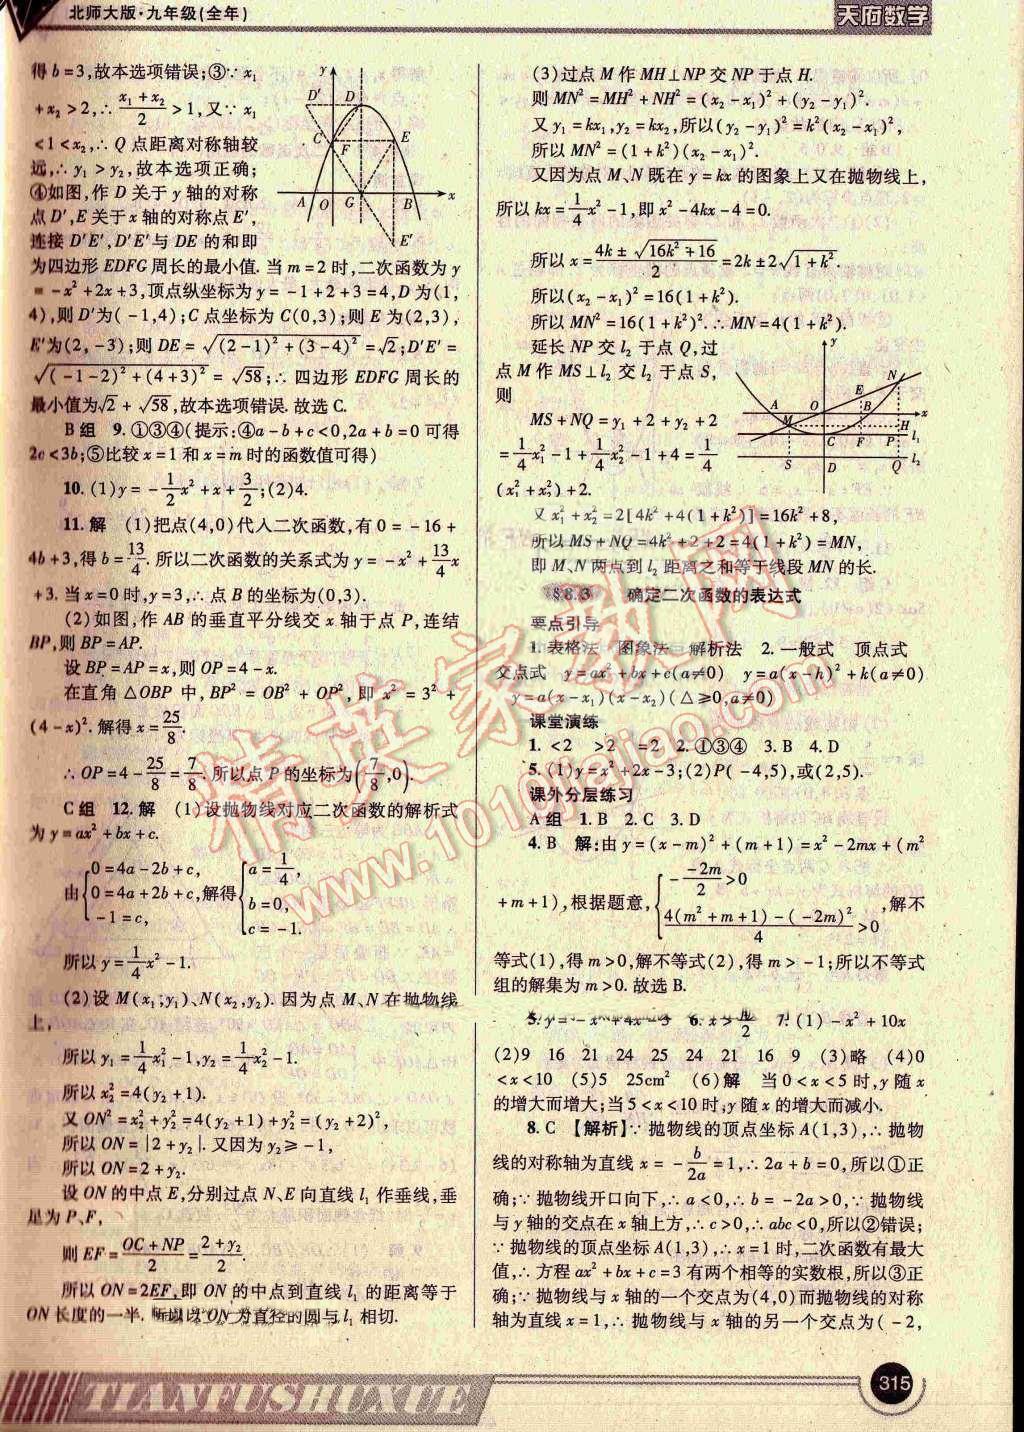 北师大版·九年级(全年)
天府数学
得b=3,故本选项错误;③∵x₁
+x₂>2,∴(x₁+x₂)/2>1,又∵x₁
<1<x₂,∴Q点距离对称轴较
远,∴y₁>y₂,故本选项正确;
④如图,作D关于y轴的对称
点D′,E关于x轴的对称点E′,
连接D′E′,D′E′与DE的和即
为四边形EDFG周长的最小值.当m=2时,二次函数为y
=-x²+2x+3,顶点纵坐标为y=-1+2+3=4,D为(1,
4),则D′为(-1,4);C点坐标为C(0,3);则E为(2,3),
E′为(2,-3);则DE=√((2-1)²+(3-4)²)=√2;D′E′=
√((-1-2)²+(4+3)²)=√58;∴四边形EDFG周长的
最小值为√2+√58,故本选项错误.故选C.
B组 9.①③④(提示:④a-b+c<0,2a+b=0可得
2c<3b;⑤比较x=1和x=m时的函数值可得)
10.(1)y=-1/2x²+x+3/2;(2)4.
11.解 (1)把点(4,0)代入二次函数,有0=-16+
4b+3,得b=13/4.所以二次函数的关系式为y=-x²+13/4x
+3.当x=0时,y=3,∴点B的坐标为(0,3).
(2)如图,作AB的垂直平分线交x轴于点P,连结
BP,则BP=AP.
设BP=AP=x,则OP=4-x.
在直角△OBP中,BP²=OB²+OP²,即x²=3²+
(4-x)².解得x=25/8.
∴OP=4-25/8=7/8.所以点P的坐标为(7/8,0).
C组 12.解 (1)设抛物线对应二次函数的解析式
为y=ax²+bx+c.
由{0=4a-2b+c, 0=4a+2b+c, -1=c, 解得{a=1/4, b=0, c=-1.
所以y=1/4x²-1.
(2)设M(x₁,y₁)、N(x₂,y₂).因为点M、N在抛物线
上,
所以y₁=1/4x₁²-1,y₂=1/4x₂²-1.
所以x₂²=4(y₂+1).
又ON²=x₂²+y₂²=4(y₂+1)+y₂²=(y₂+2)²,
所以ON=|2+y₂|.又因为y₂≥-1,
所以ON=2+y₂.
设ON的中点E,分别过点N、E向直线l₁作垂线,垂
足为P、F,
则EF=(OC+NP)/2=(2+y₂)/2.
所以ON=2EF,即ON的中点到直线l₁的距离等于
ON长度的一半.所以以ON为直径的圆与l₁相切.
(3)过点M作MH⊥NP交NP于点H.
则MN²=MH²+NH²=(x₂-x₁)²+(y₂-y₁)².
又y₁=kx₁,y₂=kx₂,所以(y₂-y₁)²=k²(x₂-x₁)²,
所以MN²=(1+k²)(x₂-x₁)².
又因为点M、N既在y=kx的图象上又在抛物线上,
所以kx=1/4x²-1,即x²-4kx-4=0.
所以x=(4k±√(16k²+16))/2=2k±2√(1+k²).
所以(x₂-x₁)²=16(1+k²).
所以MN²=16(1+k²)².∴MN=4(1+k²).
延长NP交l₂于点Q,过
点M作MS⊥l₂交l₂于点S,
则
MS+NQ=y₁+2+y₂+2
=1/4x₁²-1+1/4x₂²-1+4=1/4
(x₁²+x₂²)+2.
又x₁²+x₂²=2[4k²+4(1+k²)]=16k²+8,
所以MS+NQ=4k²+2+2=4(1+k²)=MN,
即M、N两点到l₂距离之和等于线段MN的长.
§8.3 确定二次函数的表达式
要点引导
1.表格法 图象法 解析法 2.一般式 顶点式
交点式 y=ax²+bx+c(a≠0) y=a(x-h)²+k(a≠0)
y=a(x-x₁)(x-x₂)(△≥0,a≠0)
课堂演练
1.<2 >2 =2 2.①③④ 3.B 4.D
5.(1)y=x²+2x-3;(2)P(-4,5),或(2,5).
课外分层练习
A组 1.B 2.C 3.D
4.B 解:由y=(x-m)²+(m+1)=x²-2mx+(m²
+m+1),根据题意,{-(-2m)/2>0, (4(m²+m+1)-(-2m)²)/4>0, 解不
等式(1),得m>0,解不等式(2),得m>-1;所以不等式
组的解集为m>0.故选B.
5.y=-x²+4x-3 6.x>/2 7.(1)-x²+10x
(2)9 16 21 24 25 24 21 16 9 (3)略 (4)0
<x<10 (5)5 25cm² (6)解 当0<x<5时,y随x
的增大而增大;当5<x<10时,y随x的增大而减小.
8.C 【解析】∵抛物线的顶点坐标A(1,3),∴抛物
线的对称轴为直线x=-b/2a=1,∴2a+b=0,所以①正
确;∵抛物线开口向下,∴a<0,∴b=-2a>0,∵抛物线
与y轴的交点在x轴上方,∴c>0,∴abc<0,所以②错误;
∵抛物线的顶点坐标A(1,3),∴x=1时,二次函数有最大
值,∴方程ax²+bx+c=3有两个相等的实数根,所以③正
确;∵抛物线与x轴的一个交点为(4,0)而抛物线的对称
轴为直线x=1,∴抛物线与x轴的另一个交点为(-2,
TIANFUSHUXUE
315
精英家教网
www.1010jiajiao.com